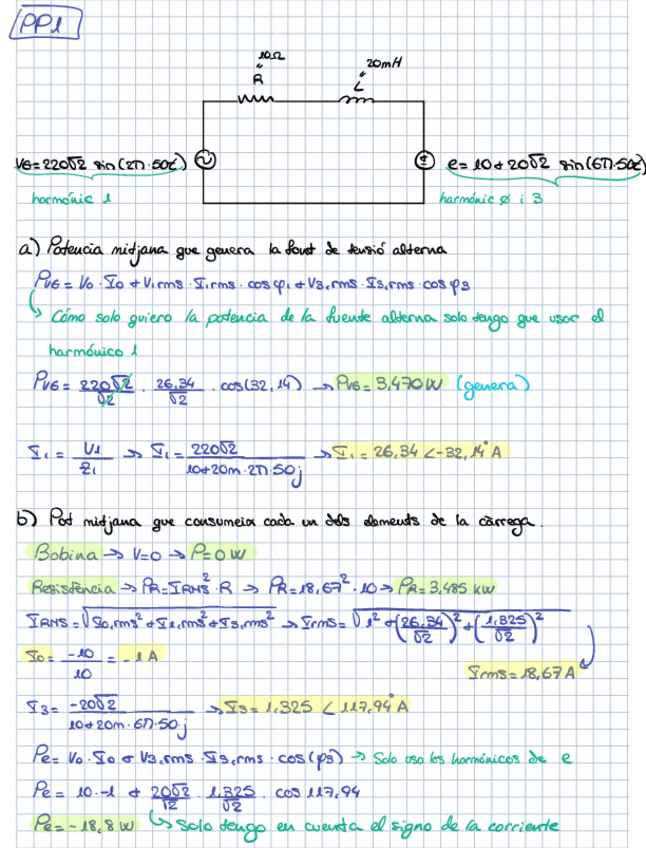 PP1
10Ω
"
R
20mH
"
L
VG=220√2 sin(2π·50t)
e=10+20√2 sin(6π·50t)
harmónic 1
harmónic ∅ i 3
a) Potencia mitjana que genera la font de tensió alterna
PVG = V0 · I0 + V1rms · I1rms · cos φ1 + V3,rms · I3,rms · cos φ3
Cómo solo quiero la potencia de la fuente alterna solo tengo que usar el
harmónico 1
PVG = 220√2/√2 · 26,34/√2 · cos(32,14) → PVG = 3,470W (genera)
I1 = V1/Z1 → I1 = 220√2/(10+20m·2π·50j) → I1 = 26,34 ∠-32,14° A
b) Pot mitjana que consumeix cada un dels elements de la càrrega.
Bobina → V=0 → P=0 W
Resistència → PR=IRMS²·R → PR=18,67²·10 → PR=3,485 kW
IRMS = √(I0,rms² + I1,rms² + I3,rms²) → Irms = √(1² + (26,34/√2)² + (1,325/√2)²)
I0 = -10/10 = -1 A
Irms = 18,67 A
I3 = -20√2/(10+20m·6π·50j) → I3 = 1,325 ∠117,94° A
Pe = V0 · I0 + V3,rms · I3,rms · cos(φ3) → Solo uso los harmónicos de e
Pe = 10·-1 + 20√2/√2 · 1,325/√2 · cos 117,94
Pe = -18,8 W
Solo tengo en cuenta el signo de la corriente